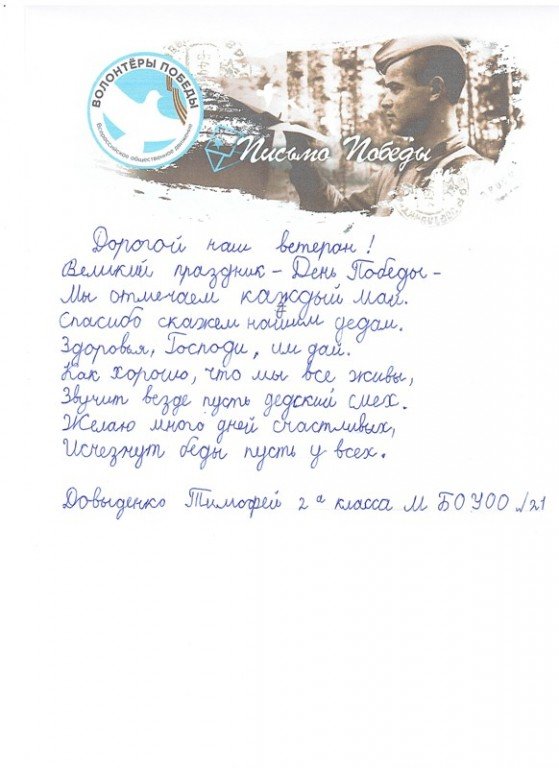 ВОЛОНТЁРЫ ПОБЕДЫ
Всероссийское общественное движение
Письмо Победы
Дорогой наш ветеран!
Великий праздник - День Победы -
Мы отмечаем каждый май.
Спасибо скажем нашим дедам.
Здоровья, Господи, им дай.
Как хорошо, что мы все живы,
Звучит везде пусть дедский смех.
Желаю много дней счастливых,
Исчезнут беды пусть у всех.
Довыденко Тимофей 2 а класса М БОУОО №21